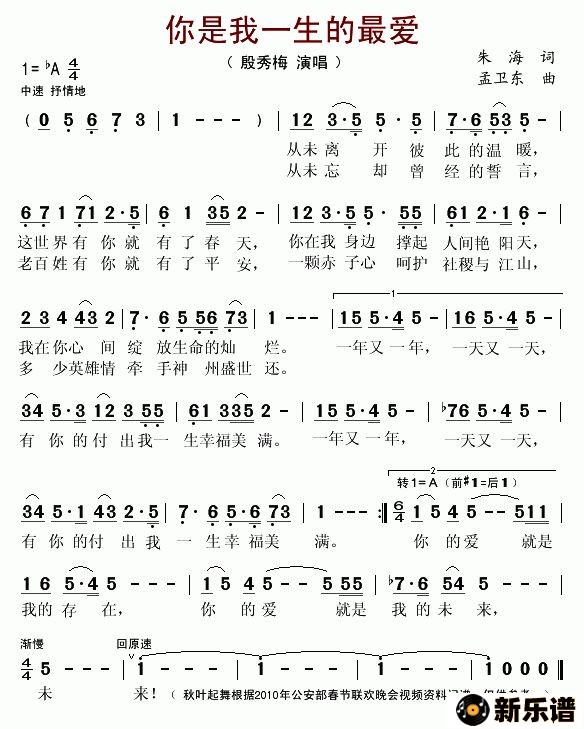 你是我一生的最爱
（ 殷秀梅 演唱 ）
朱 海 词
孟卫东 曲
1= ♭A 4/4
中速 抒情地
( 0 5 6 7 3 | 1 - - - ) | 12 3·5 5· 5 | 7·6 53 5 - |
从未离 开 彼 此的温暖，
从未忘 却 曾 经的誓言，
6 7 1 71 2·5 | 6 1 35 2 - | 12 3·5 5· 55 | 61 2·1 2 - |
这世界有你就 有了春天， 你在我身边 撑起 人间艳阳天，
老百姓有你就 有了平安， 一颗赤子心 呵护 社稷与江山，
2 3 4 43 2 | 7· 6 5 56 73 | 1 - - - | 15 5·4 5 - | 16 5·4 5 - |
1
我在你心 间 绽 放生命的灿 烂。 一年又一年， 一天又一天，
多 少英雄情 牵 手神 州盛世 还。
34 5·3 12 3 55 | 61 335 2 - | 15 5·4 5 - | ♭76 5·4 5 - |
有 你的付 出我一 生幸福美 满。 一年又一年， 一天又一天，
2
转1=A（前♯1=后1）
34 5·1 43 3 | 7· 6 5 6 73 | 1 - - - :‖ 6/4 1 45 5 - - 511 |
有 你的付 出 我 一 生幸 福美 满。 你的 爱 就是
1 6 5·4 5 - | 1 45 5 - - 555 | ♭7·6 54 5 - |
我的 存 在， 你 的 爱 就是 我 的 未 来，
渐慢 回原速
4/4 5 - - - | 1 - - - | 1 - - - | 1 - - - | 1 0 0 0 ‖
未 来！（ 秋叶起舞根据2010年公安部春节联欢晚会视频资料
新乐谱